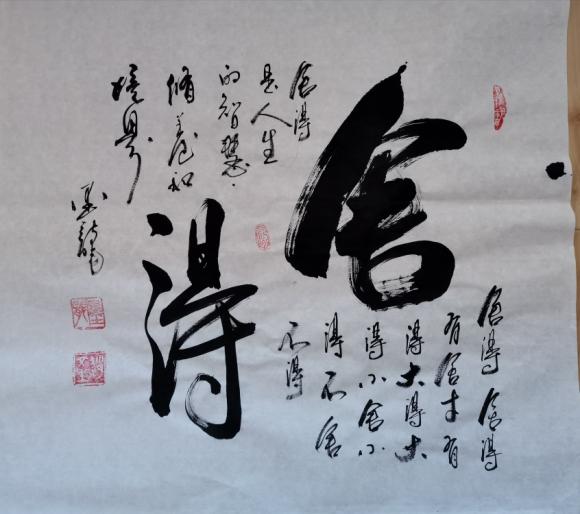 舍
得
舍得舍得
有舍才有
得大得大
得小舍小
得不舍
不得
舍得
是人生
的智慧.
修养和
境界